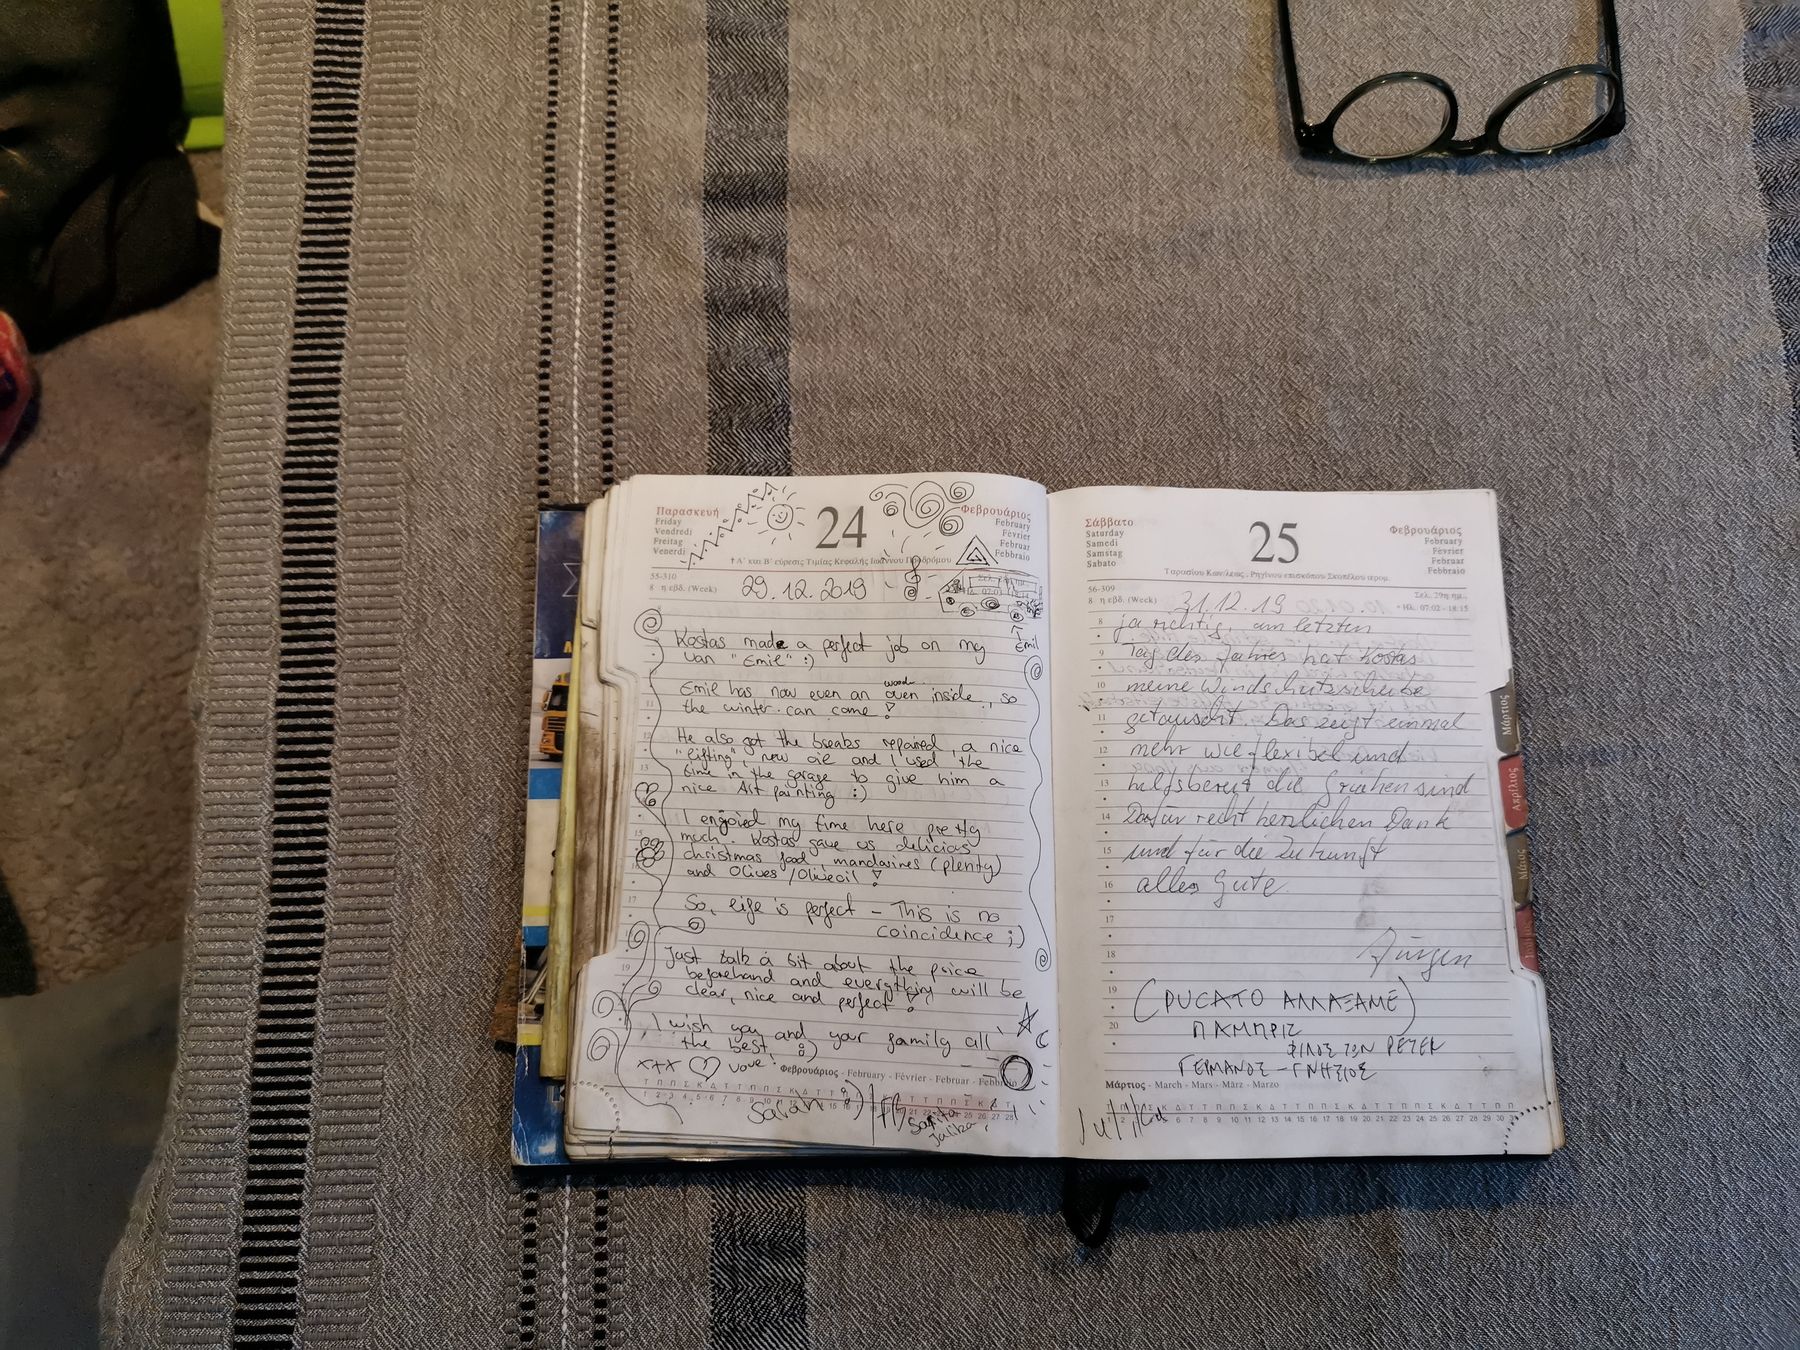 Παρασκευή
Friday
Vendredi
Freitag
Venerdì
24
Φεβρουάριος
February
Février
Februar
Febbraio
† Α΄ και Β΄ εύρεσις Τιμίας Κεφαλής Ιωάννου Προδρόμου
55-310
8 η εβδ. (Week)
29.12.2019
Emil
Kostas made a perfect job on my
van "Emil" :)
wood
Emil has now even an oven inside, so
the winter can come!
He also got the breaks repaired, a nice
"Lifting", new oil and I used the
time in the garage to give him a
nice Art painting :)
I enjoied my time here pretty
much. Kostas gave us delicias
christmas food, mandarines (plenty)
and Olives/Oliveoil!
So, life is perfect - This is no
coincidence ;)
Just talk a bit about the price
beforehand and everything will be
clear, nice and perfect!
I wish you and your family all
the best :)
Φεβρουάριος - February - Février - Februar - Febbraio
Σάββατο
Saturday
Samedi
Samstag
Sabato
25
Φεβρουάριος
February
Février
Februar
Febbraio
Ταρασίου Κων/λεως, Ρηγίνου επισκόπου Σκοπέλου ιερομ.
56-309
8 η εβδ. (Week)
Σελ. 29η ημ.,
Ηλ. 07:02 - 18:15
31.12.19
ja richtig, am letzten
Tag des Jahres hat Kostas
meine Windschutzscheibe
getauscht. Das zeigt einmal
mehr wie flexibel und
hilfsbereit die Griechen sind
Dafür recht herzlichen Dank
und für die Zukunft
alles Gute
Jürgen
(DUCATO ΑΛΛΑΞΑΜΕ)
ΠΑΜΠΡΙΖ
ΦΙΛΟΣ ΤΟΝ PETER
ΓΕΡΜΑΝΟΣ - ΓΝΗΣΙΟΣ
Μάρτιος - March - Mars - März - Marzo
Μάρτιος
Απρίλιος
Μάιος